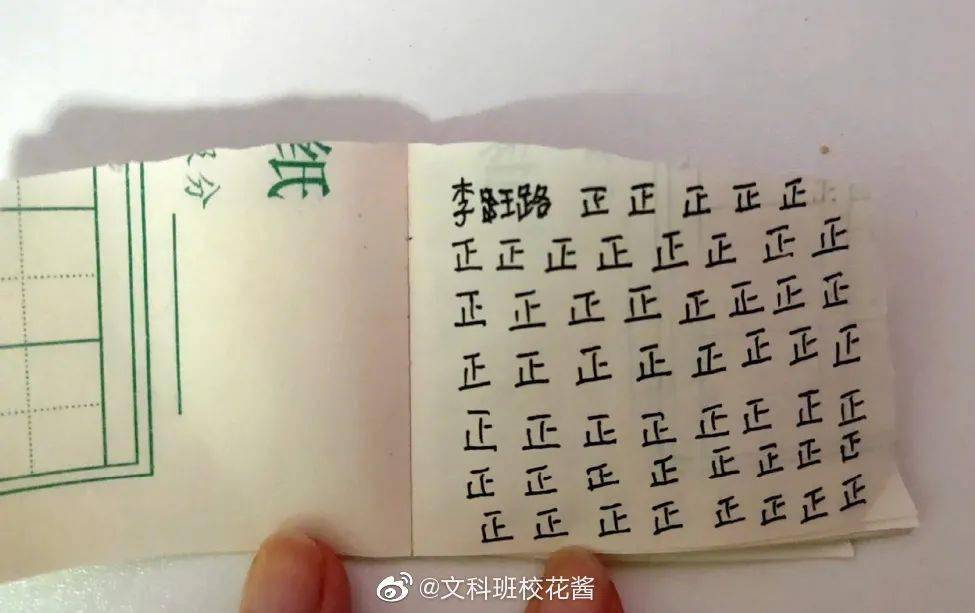 纸
分
李旺路 正 正 正 正 正
正 正 正 正 正 正 正 正
正 正 正 正 正 正 正 正
正 正 正 正 正 正 正 正
正 正 正 正 正 正 正 正
正 正 正 正 正 正 正 正
正 正 正 正 正 正 正 正
@文科班校花酱